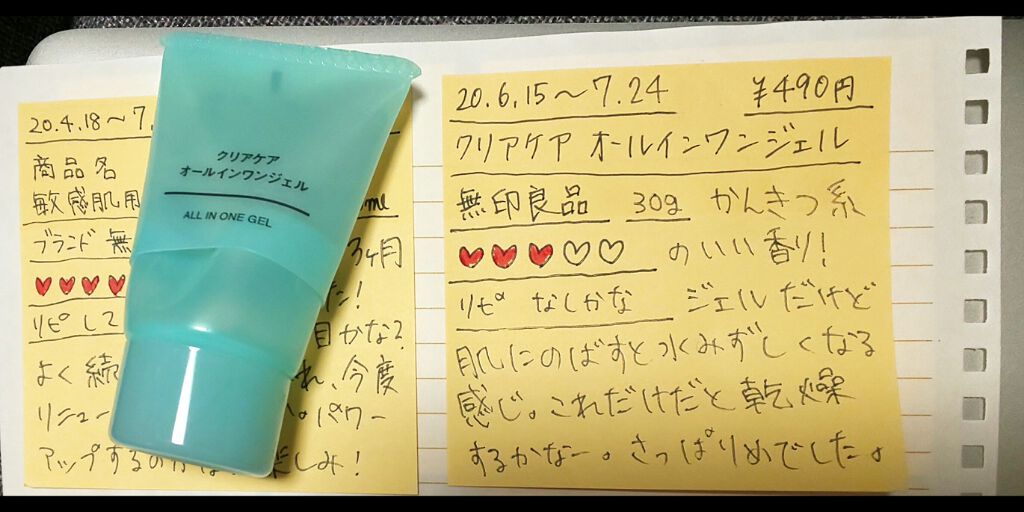 20.4.18〜7.
商品名
敏感肌用
ブランド 無
3ヶ月
♥♥♥♥
た!
リピして
目かな?
よく続
れ、今度
リニュー
。パワー
アップするの
しみ!
クリアケア
オールインワンジェル
ALL IN ONE GEL
20.6.15〜7.24 ¥490円
クリアケア オールインワンジェル
無印良品 30g かんきつ系
♥♥♥♡♡ のいい香り!
リピ なしかな ジェルだけど
肌にのばすと水みずしくなる
感じ。これだけだと乾燥
するかなー。さっぱりめでした。